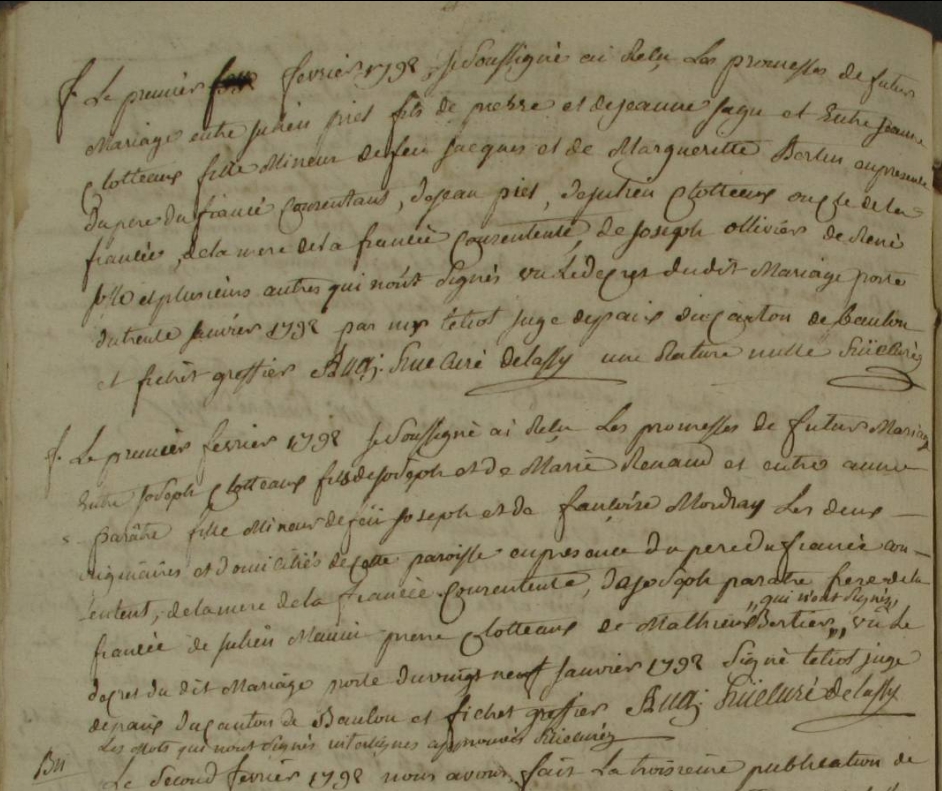 f. Le premier fevrier 1798 je Soussigné ai Relu Les promesses de futur
Mariage entre julien piel fils de pierre et dejeanne juge et Entre jeanne
Clotteaux fille Mineur defeu jacques et de Margueritte Bertin enpresence
Dupere dufiancé Consentant, dejean piel, dejulien Clotteaux oncle dela
fiancée, dela mere dela fiancée Consentente, de joseph ollivier de René
et plusieurs autres qui n'ont Signés vu Ledecret dudit Mariage porté
dutrente janvier 1798 par tetiot juge depaix ducanton de baulon
et fichet greffier Curé delassy une Rature nulle
f. Le premier fevrier 1798 je Soussigné ai Relu Les promesses de futur Mariage
Entre joseph Clotteaux fils dejoseph et de Marie Renaud et entre anne
paratre fille Mineur defeu joseph et de Les deux
originaires et domiciliés decette paroisse enpresence dupere dufiancé con-
sentent, delamere dela fiancée Consentente, dejoseph paratre frere dela
„qui n'ont Signés,
fiancée de julien pierre Clotteaux de Mathieu Bertier„ vu Le
decret du dit Mariage porté duvingt neuf janvier 1798 Signé tetiot juge
depaix ducanton de Baulon et fichet greffier Curé de lassy
Les Mots qui nont Signés interlignes approuvés
Bn
Le Second fevrier 1798 nous avons fait La troisieme publication de